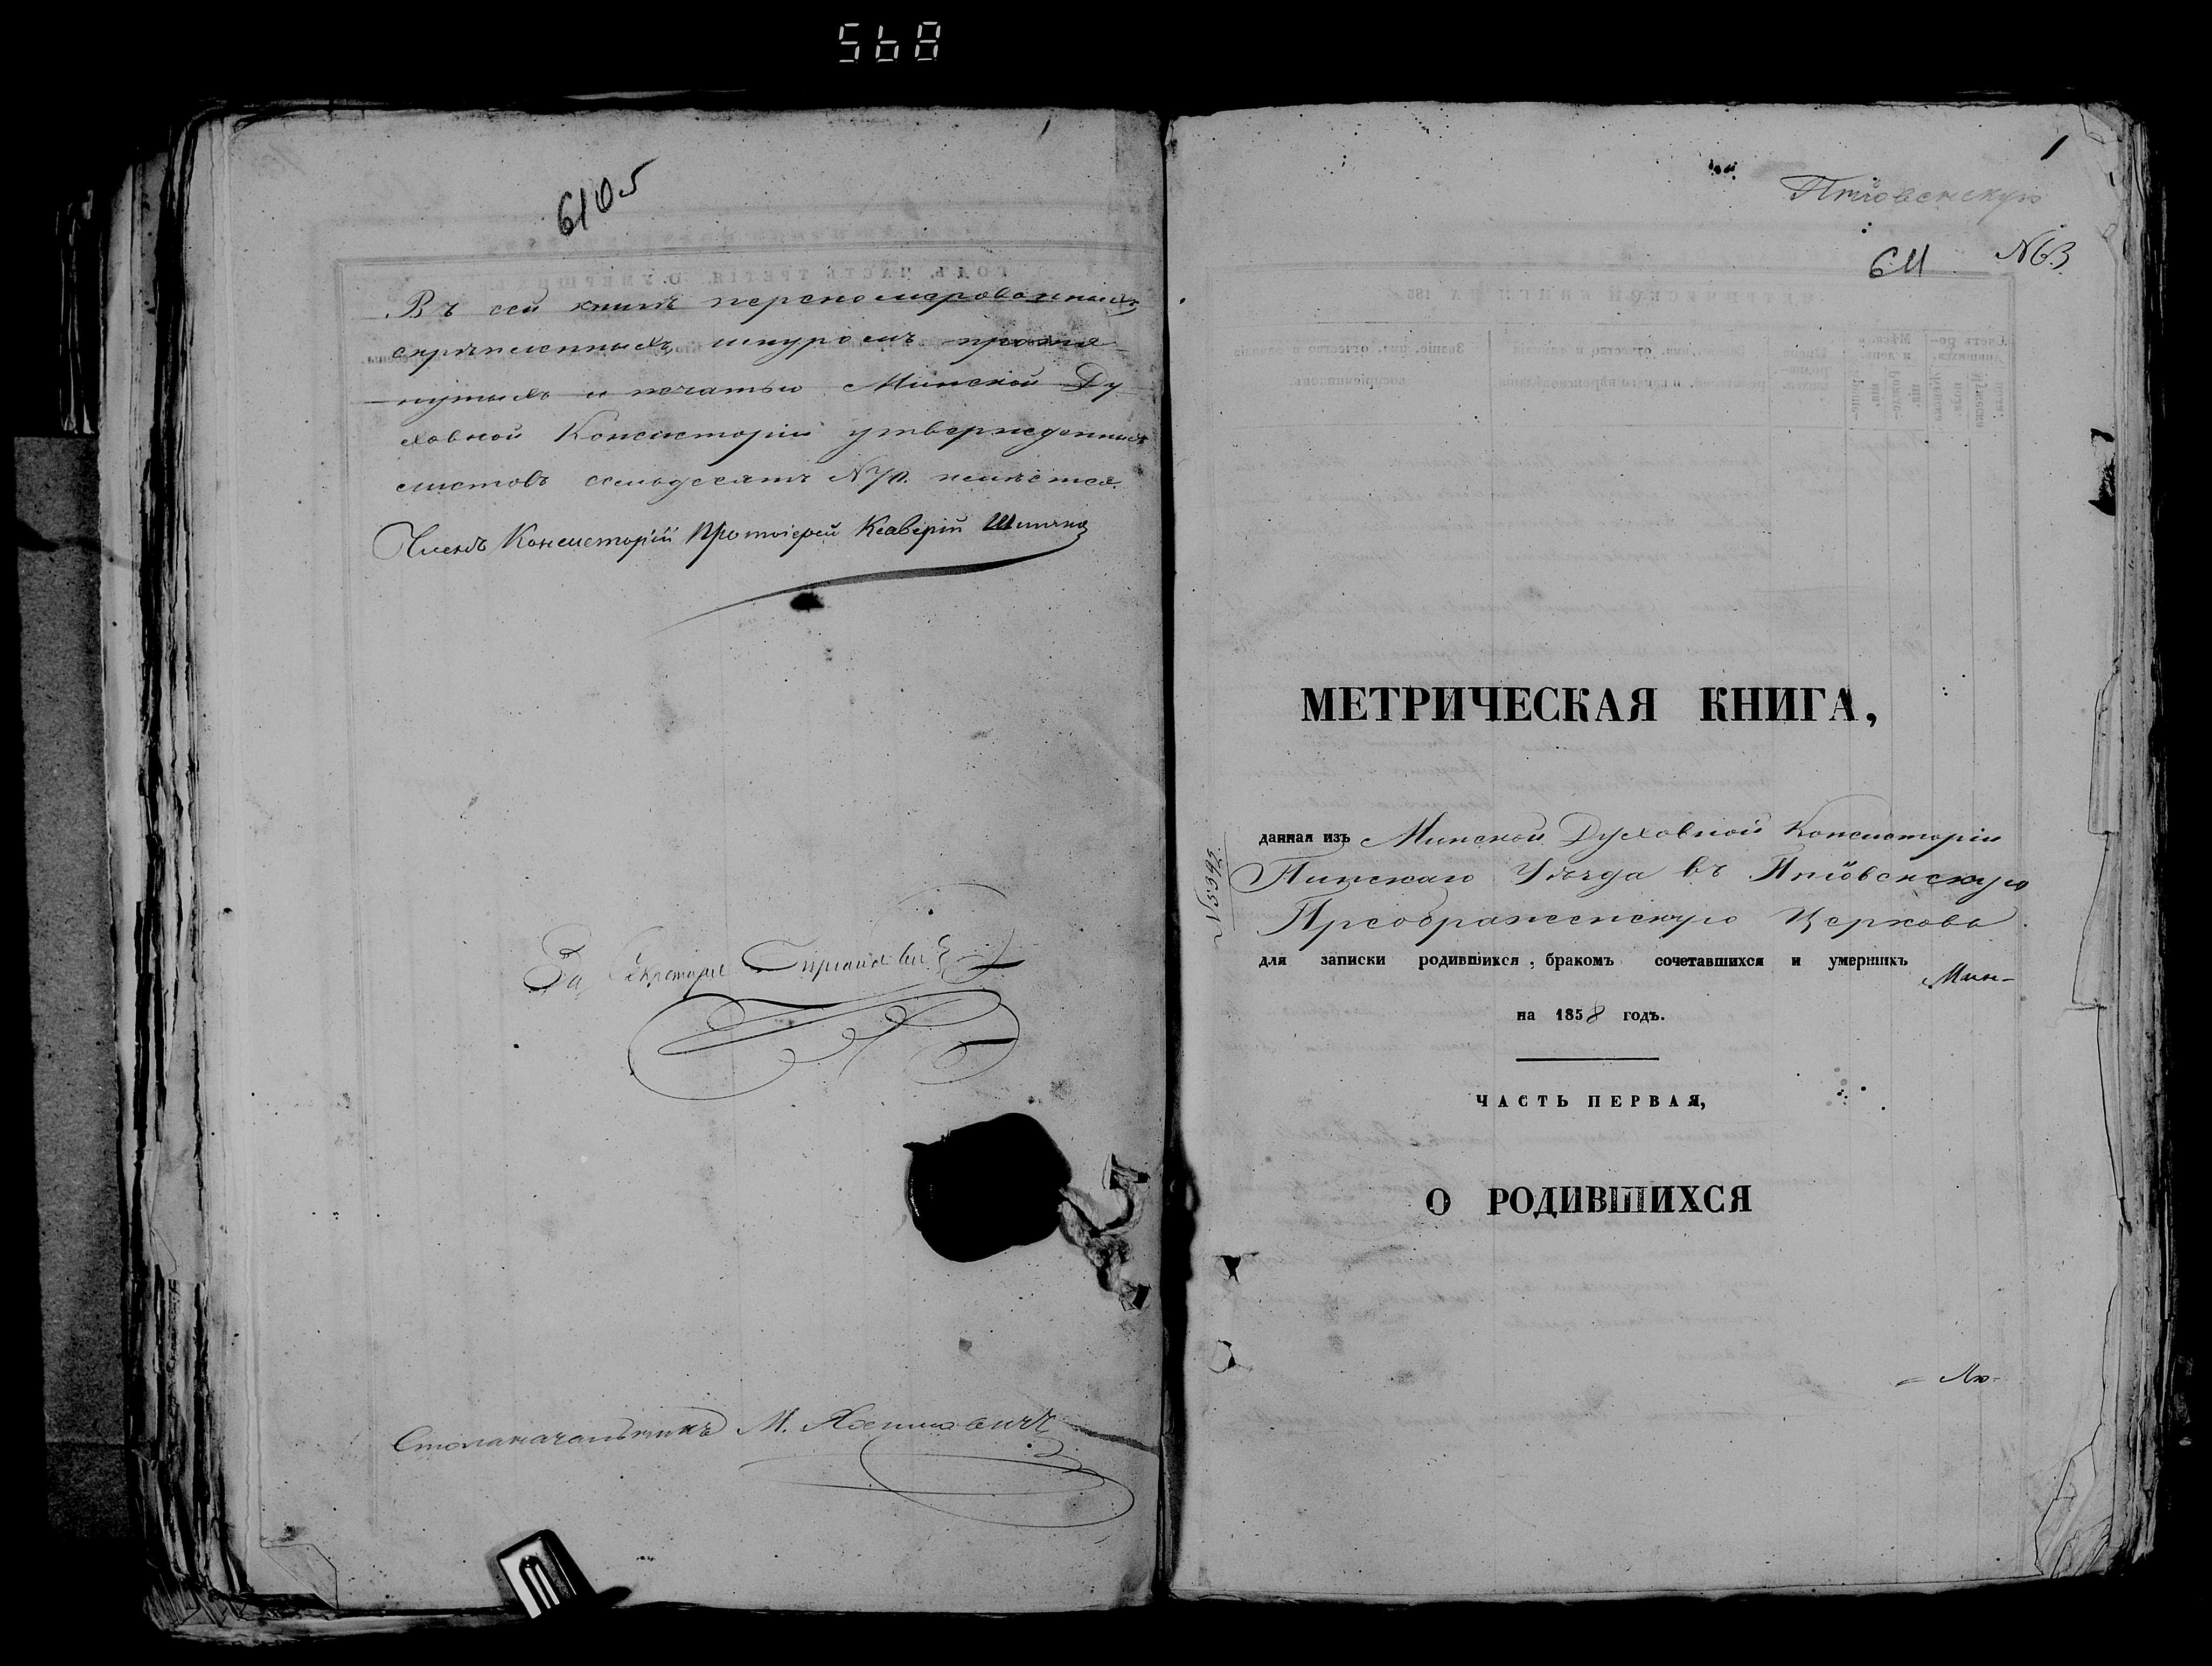 568
6105
Въ сей книгѣ перено­мерованныхъ
скрѣпленныхъ, шнуромъ протя-
нутыхъ и печатью Минской Ду-
ховной Консисторіи утвержденныхъ
листовъ семьдесятъ N 70. имѣется.
Членъ Консисторіи Протоіерей Ксаверій
За Секретаря
Столоначальникъ М.
1
Птіовенскую
611 N 63
МЕТРИЧЕСКАЯ КНИГА,
данная изъ Минской Духовной Консисторіи
Пинскаго Уѣзда въ Птіовенскую
Преображенскую Церковь
N 5392
для записки родившихся, бракомъ сочетавшихся и умершихъ
Мин-
на 1858 годъ.
ЧАСТЬ ПЕРВАЯ,
О РОДИВШИХСЯ